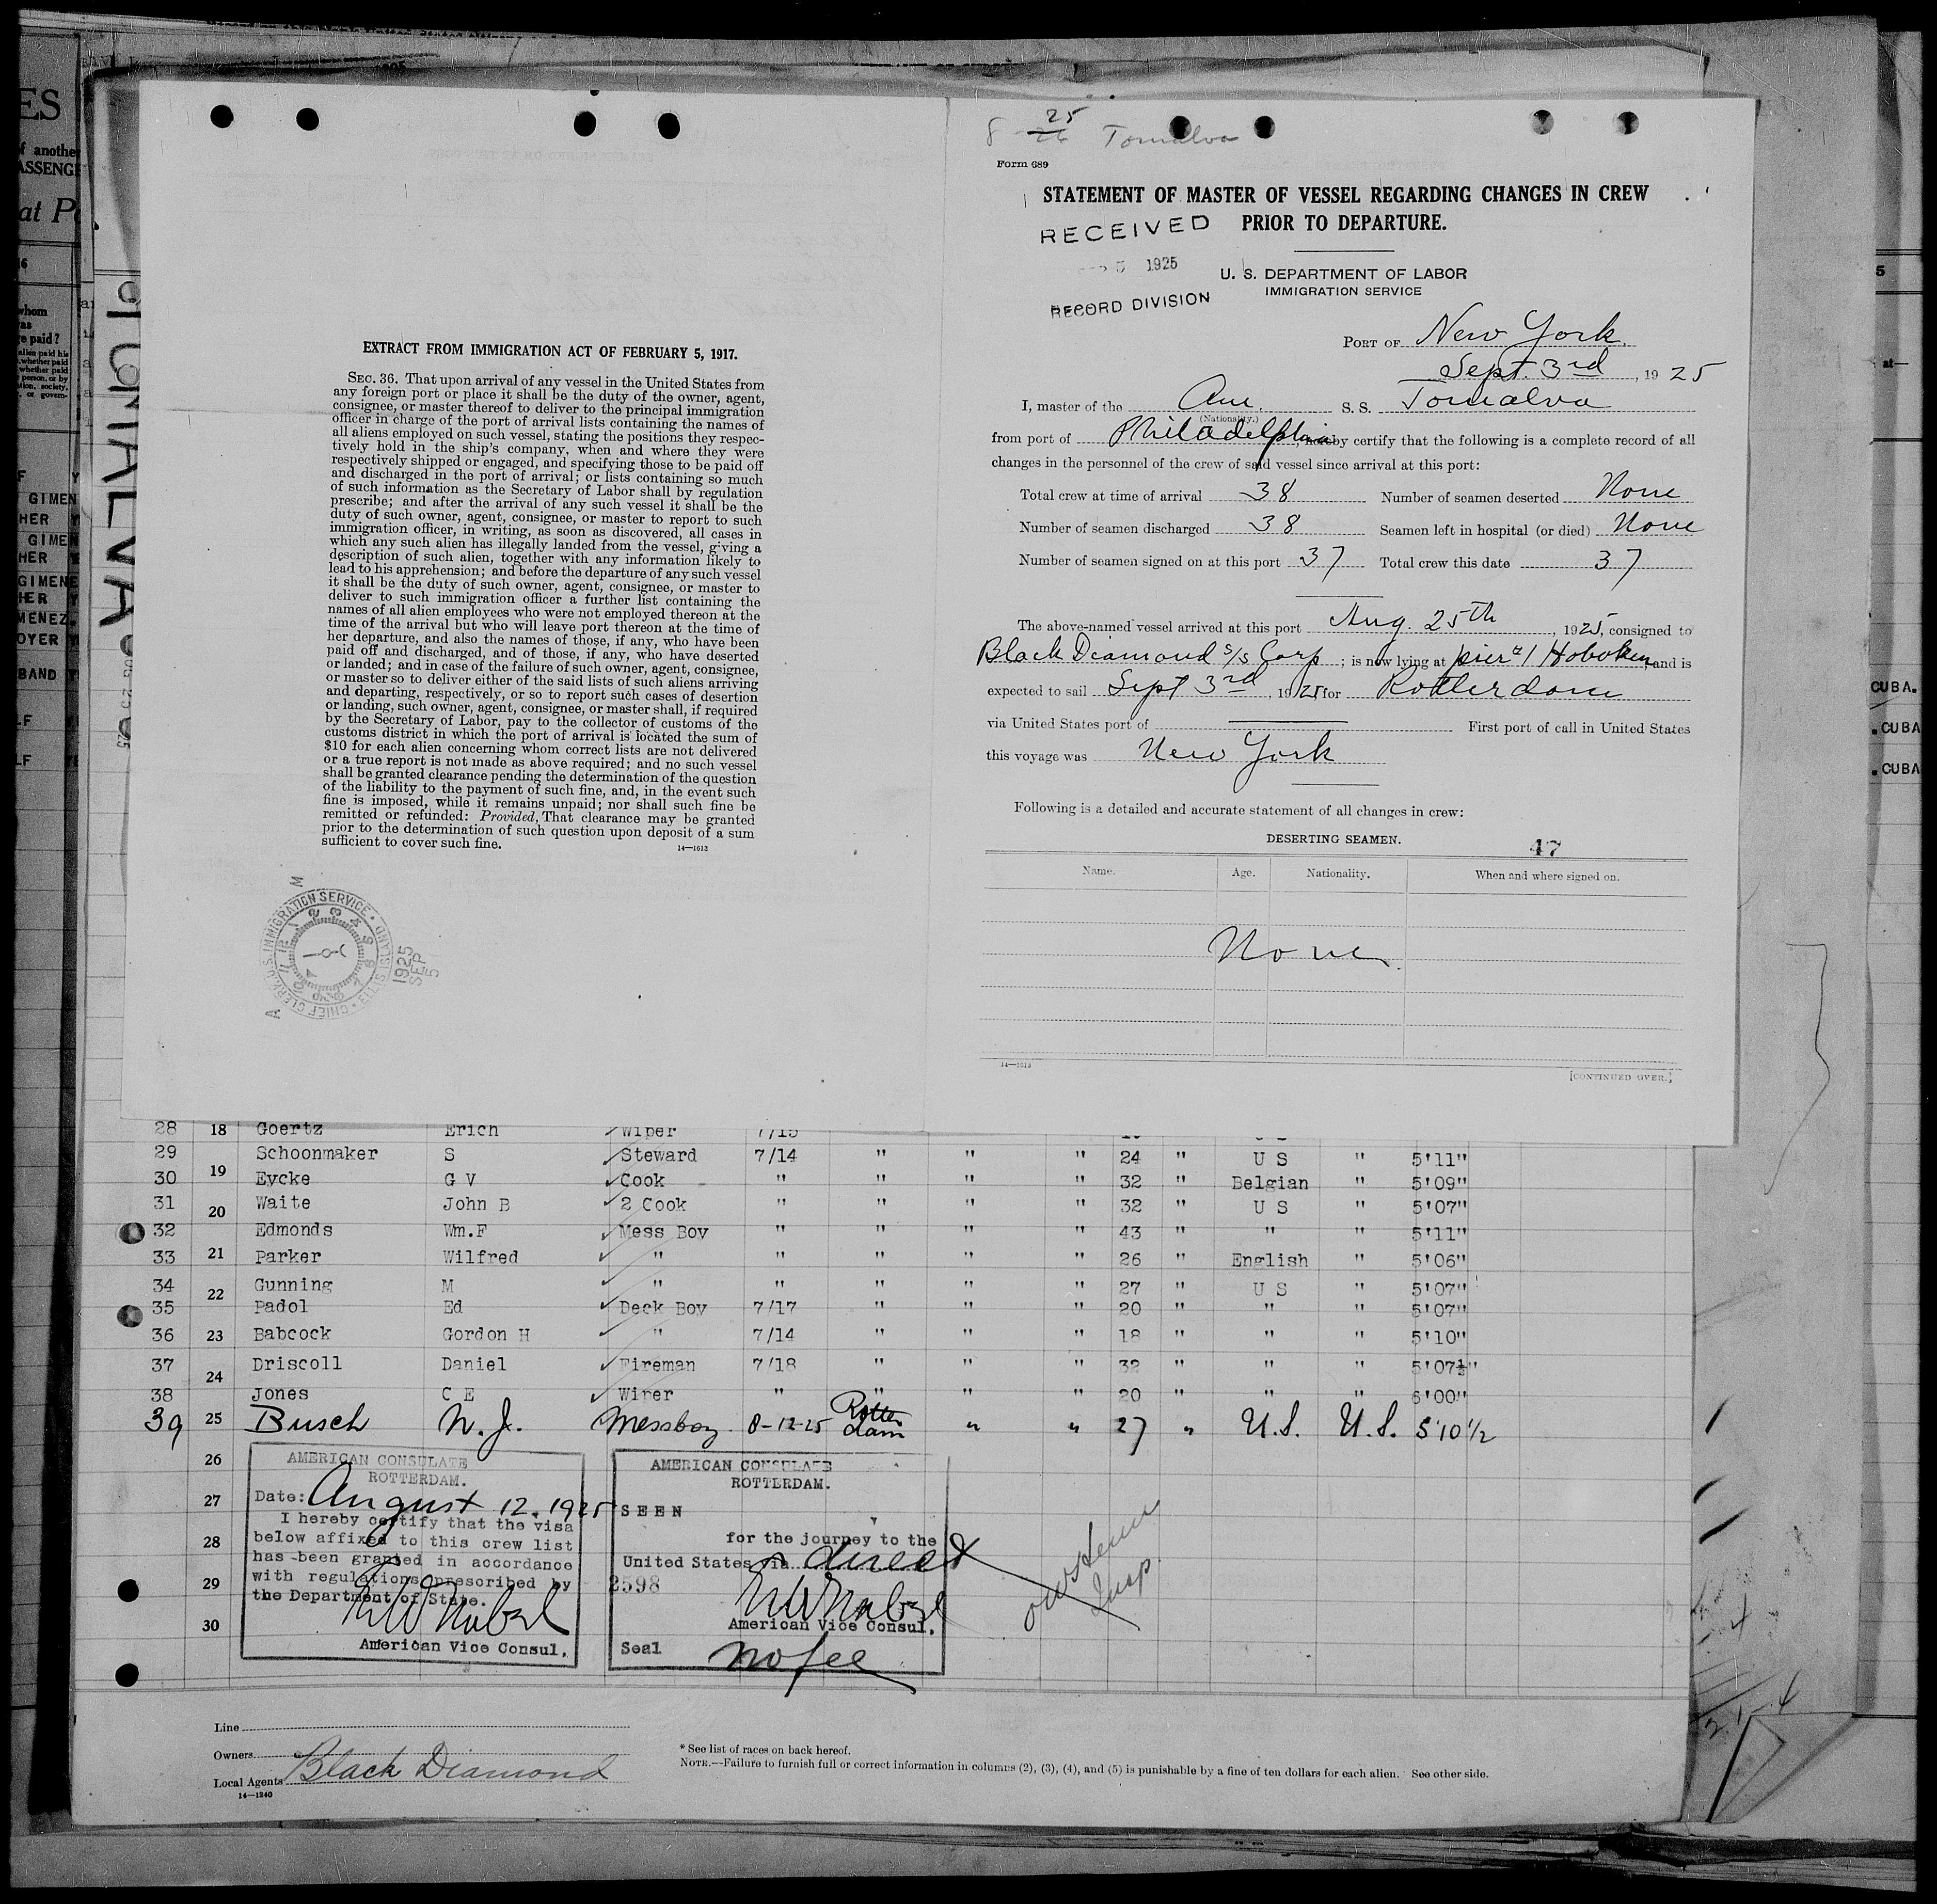 8 25
26 Tomalva
Form 689
STATEMENT OF MASTER OF VESSEL REGARDING CHANGES IN CREW
PRIOR TO DEPARTURE.
RECEIVED
5 1925
RECORD DIVISION
U. S. DEPARTMENT OF LABOR
IMMIGRATION SERVICE
PORT OF New York,
Sept. 3rd, 1925
I, master of the Am. S. S. Tomalva
(Nationality.)
from port of Philadelphia, hereby certify that the following is a complete record of all
changes in the personnel of the crew of said vessel since arrival at this port:
Total crew at time of arrival 38 Number of seamen deserted None
Number of seamen discharged 38 Seamen left in hospital (or died) None
Number of seamen signed on at this port 37 Total crew this date 37
The above-named vessel arrived at this port Aug. 25th, 1925, consigned to
Black Diamond S/S Corp; is now lying at pier #1 Hoboken, and is
expected to sail Sept 3rd, 1925 for Rotterdam
via United States port of First port of call in United States
this voyage was New York
Following is a detailed and accurate statement of all changes in crew:
DESERTING SEAMEN.
47
Name. Age. Nationality. When and where signed on.
None
14—1613
[CONTINUED OVER.]
EXTRACT FROM IMMIGRATION ACT OF FEBRUARY 5, 1917.
SEC. 36. That upon arrival of any vessel in the United States from
any foreign port or place it shall be the duty of the owner, agent,
consignee, or master thereof to deliver to the principal immigration
officer in charge of the port of arrival lists containing the names of
all aliens employed on such vessel, stating the positions they respec-
tively hold in the ship's company, when and where they were
respectively shipped or engaged, and specifying those to be paid off
and discharged in the port of arrival; or lists containing so much
of such information as the Secretary of Labor shall by regulation
prescribe; and after the arrival of any such vessel it shall be the
duty of such owner, agent, consignee, or master to report to such
immigration officer, in writing, as soon as discovered, all cases in
which any such alien has illegally landed from the vessel, giving a
description of such alien, together with any information likely to
lead to his apprehension; and before the departure of any such vessel
it shall be the duty of such owner, agent, consignee, or master to
deliver to such immigration officer a further list containing the
names of all alien employees who were not employed thereon at the
time of the arrival but who will leave port thereon at the time of
her departure, and also the names of those, if any, who have been
paid off and discharged, and of those, if any, who have deserted
or landed; and in case of the failure of such owner, agent, consignee,
or master so to deliver either of the said lists of such aliens arriving
and departing, respectively, or so to report such cases of desertion
or landing, such owner, agent, consignee, or master shall, if required
by the Secretary of Labor, pay to the collector of customs of the
customs district in which the port of arrival is located the sum of
$10 for each alien concerning whom correct lists are not delivered
or a true report is not made as above required; and no such vessel
shall be granted clearance pending the determination of the question
of the liability to the payment of such fine, and, in the event such
fine is imposed, while it remains unpaid; nor shall such fine be
remitted or refunded: Provided, That clearance may be granted
prior to the determination of such question upon deposit of a sum
sufficient to cover such fine.
14—1613
U.S. IMMIGRATION SERVICE · ELLIS ISLAND · CHIEF CLERK
1925
SEP
5
28 18 Goertz Erich Wiper 7/15
29 Schoonmaker S Steward 7/14 " " " 24 " U S " 5'11"
30 19 Eycke G V Cook " " " " 32 " Belgian " 5'09"
31 20 Waite John B 2 Cook " " " " 32 " U S " 5'07"
32 Edmonds Wm.F Mess Boy " " " " 43 " " " 5'11"
33 21 Parker Wilfred " " " " " 26 " English " 5'06"
34 22 Gunning M " " " " " 27 " U S " 5'07"
35 Padol Ed Deck Boy 7/17 " " " 20 " " " 5'07"
36 23 Babcock Gordon H " 7/14 " " " 18 " " " 5'10"
37 24 Driscoll Daniel Fireman 7/18 " " " 32 " " " 5'07½"
38 Jones C E Wiper " " " " 20 " " " 6'00"
39 25 Busch N. J. Messboy 8-12-25 Rotterdam " " 27 " U.S. U.S. 5'10½
26
27
28
29
30
AMERICAN CONSULATE
ROTTERDAM.
Date: August 12. 1925
I hereby certify that the visa
below affixed to this crew list
has been granted in accordance
with regulations prescribed by
the Department of State.
American Vice Consul.
AMERICAN CONSULATE
ROTTERDAM.
SEEN
for the journey to the
United States via direct
2598
American Vice Consul.
Seal no fee
Insp.
Line
Owners
Black Diamond
Local Agents
14—1240
* See list of races on back hereof.
NOTE.—Failure to furnish full or correct information in columns (2), (3), (4), and (5) is punishable by a fine of ten dollars for each alien. See other side.